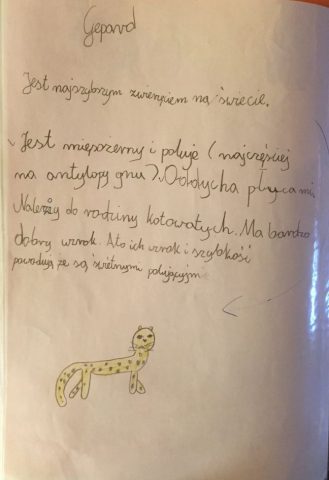 Gepard
Jest najszybszym zwierzęciem na świecie.
Jest mięsożerny i poluje (najczęściej
na antylopy gnu). Oddycha płucami.
Należy do rodziny kotowatych. Ma bardzo
dobry wzrok. A to ich wzrok i szybkość
powodują że są świetnymi polującymi